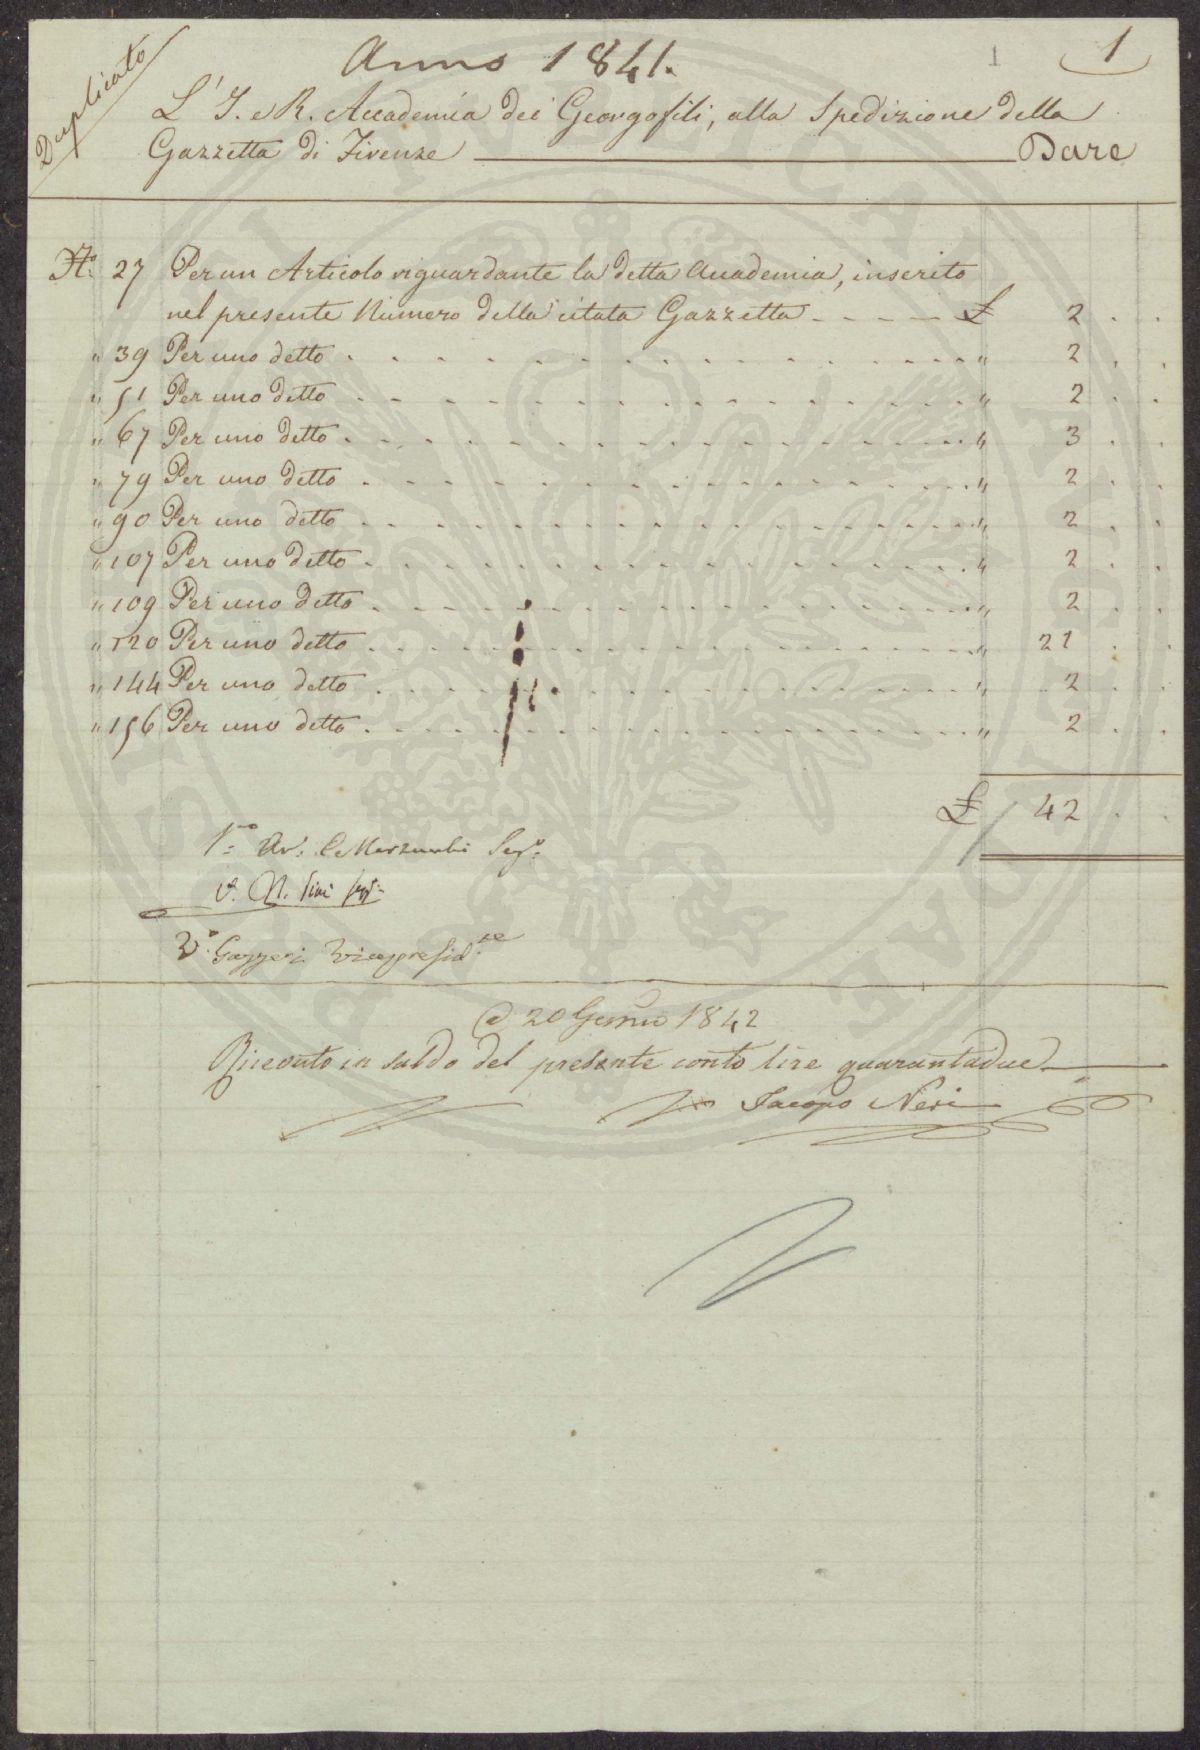 Duplicato
Anno 1841.
1
1
L' I. e R. Accademia dei Georgofili, alla Spedizione della
Gazzetta di Firenze Dare
N.° 27 Per un Articolo riguardante la detta Accademia, inserito
nel presente Numero della citata Gazzetta £ 2 . .
" 39 Per uno detto " 2 . .
" 51 Per uno detto " 2 . .
" 67 Per uno detto " 3 . .
" 79 Per uno detto " 2 . .
" 90 Per uno detto " 2 . .
" 107 Per uno detto " 2 . .
" 109 Per uno detto " 2 . .
" 120 Per uno detto " 21 . .
" 144 Per uno detto " 2 . .
" 156 Per uno detto " 2 . .
£ 42 . .
Av. Seg.
V.
V.° Gazzeri Vicepresid.te
20 1842
Ricevuto in saldo del presente conto lire quarantadue
Jacopo Neri